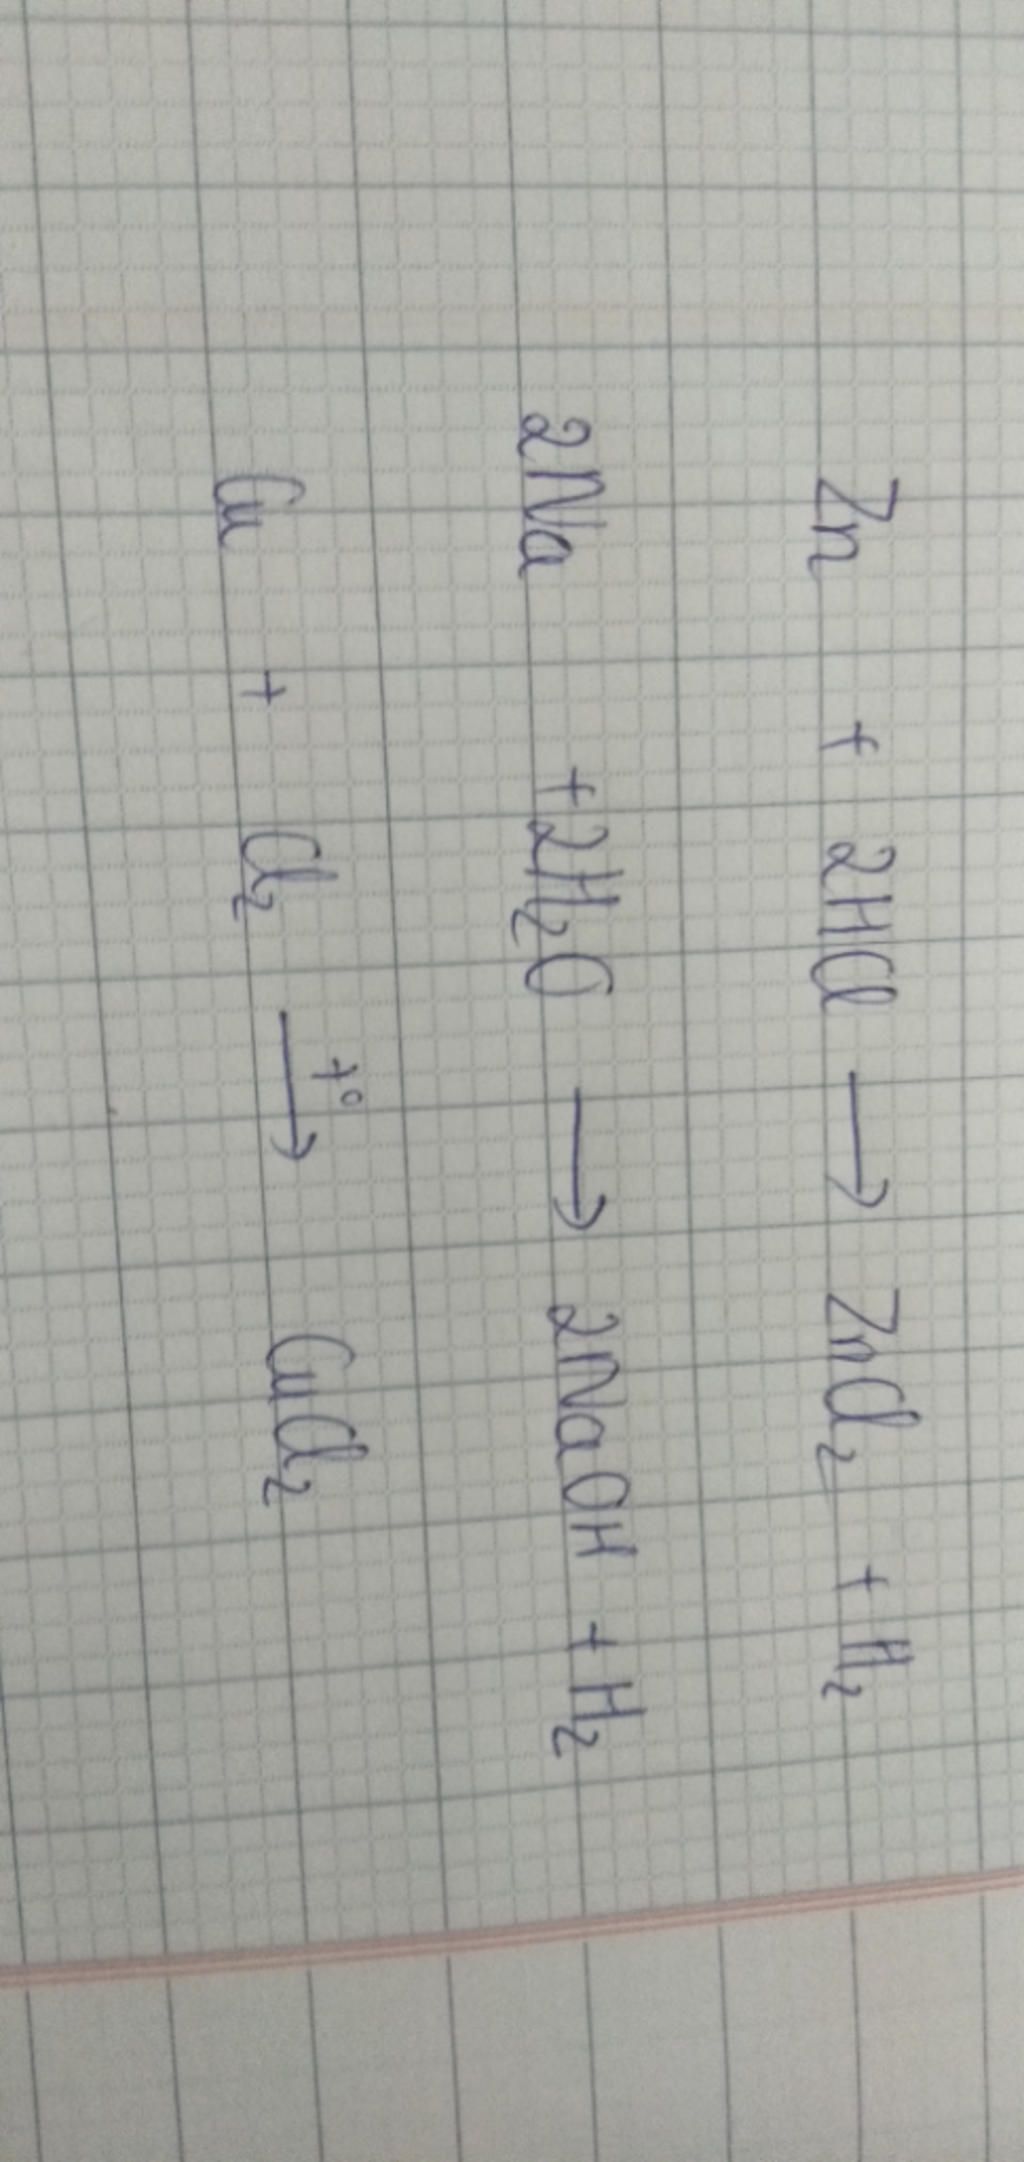 Zn + 2HCl → ZnCl₂ + H₂
2Na + 2H₂O → 2NaOH + H₂
t°
Cu + Cl₂ → CuCl₂